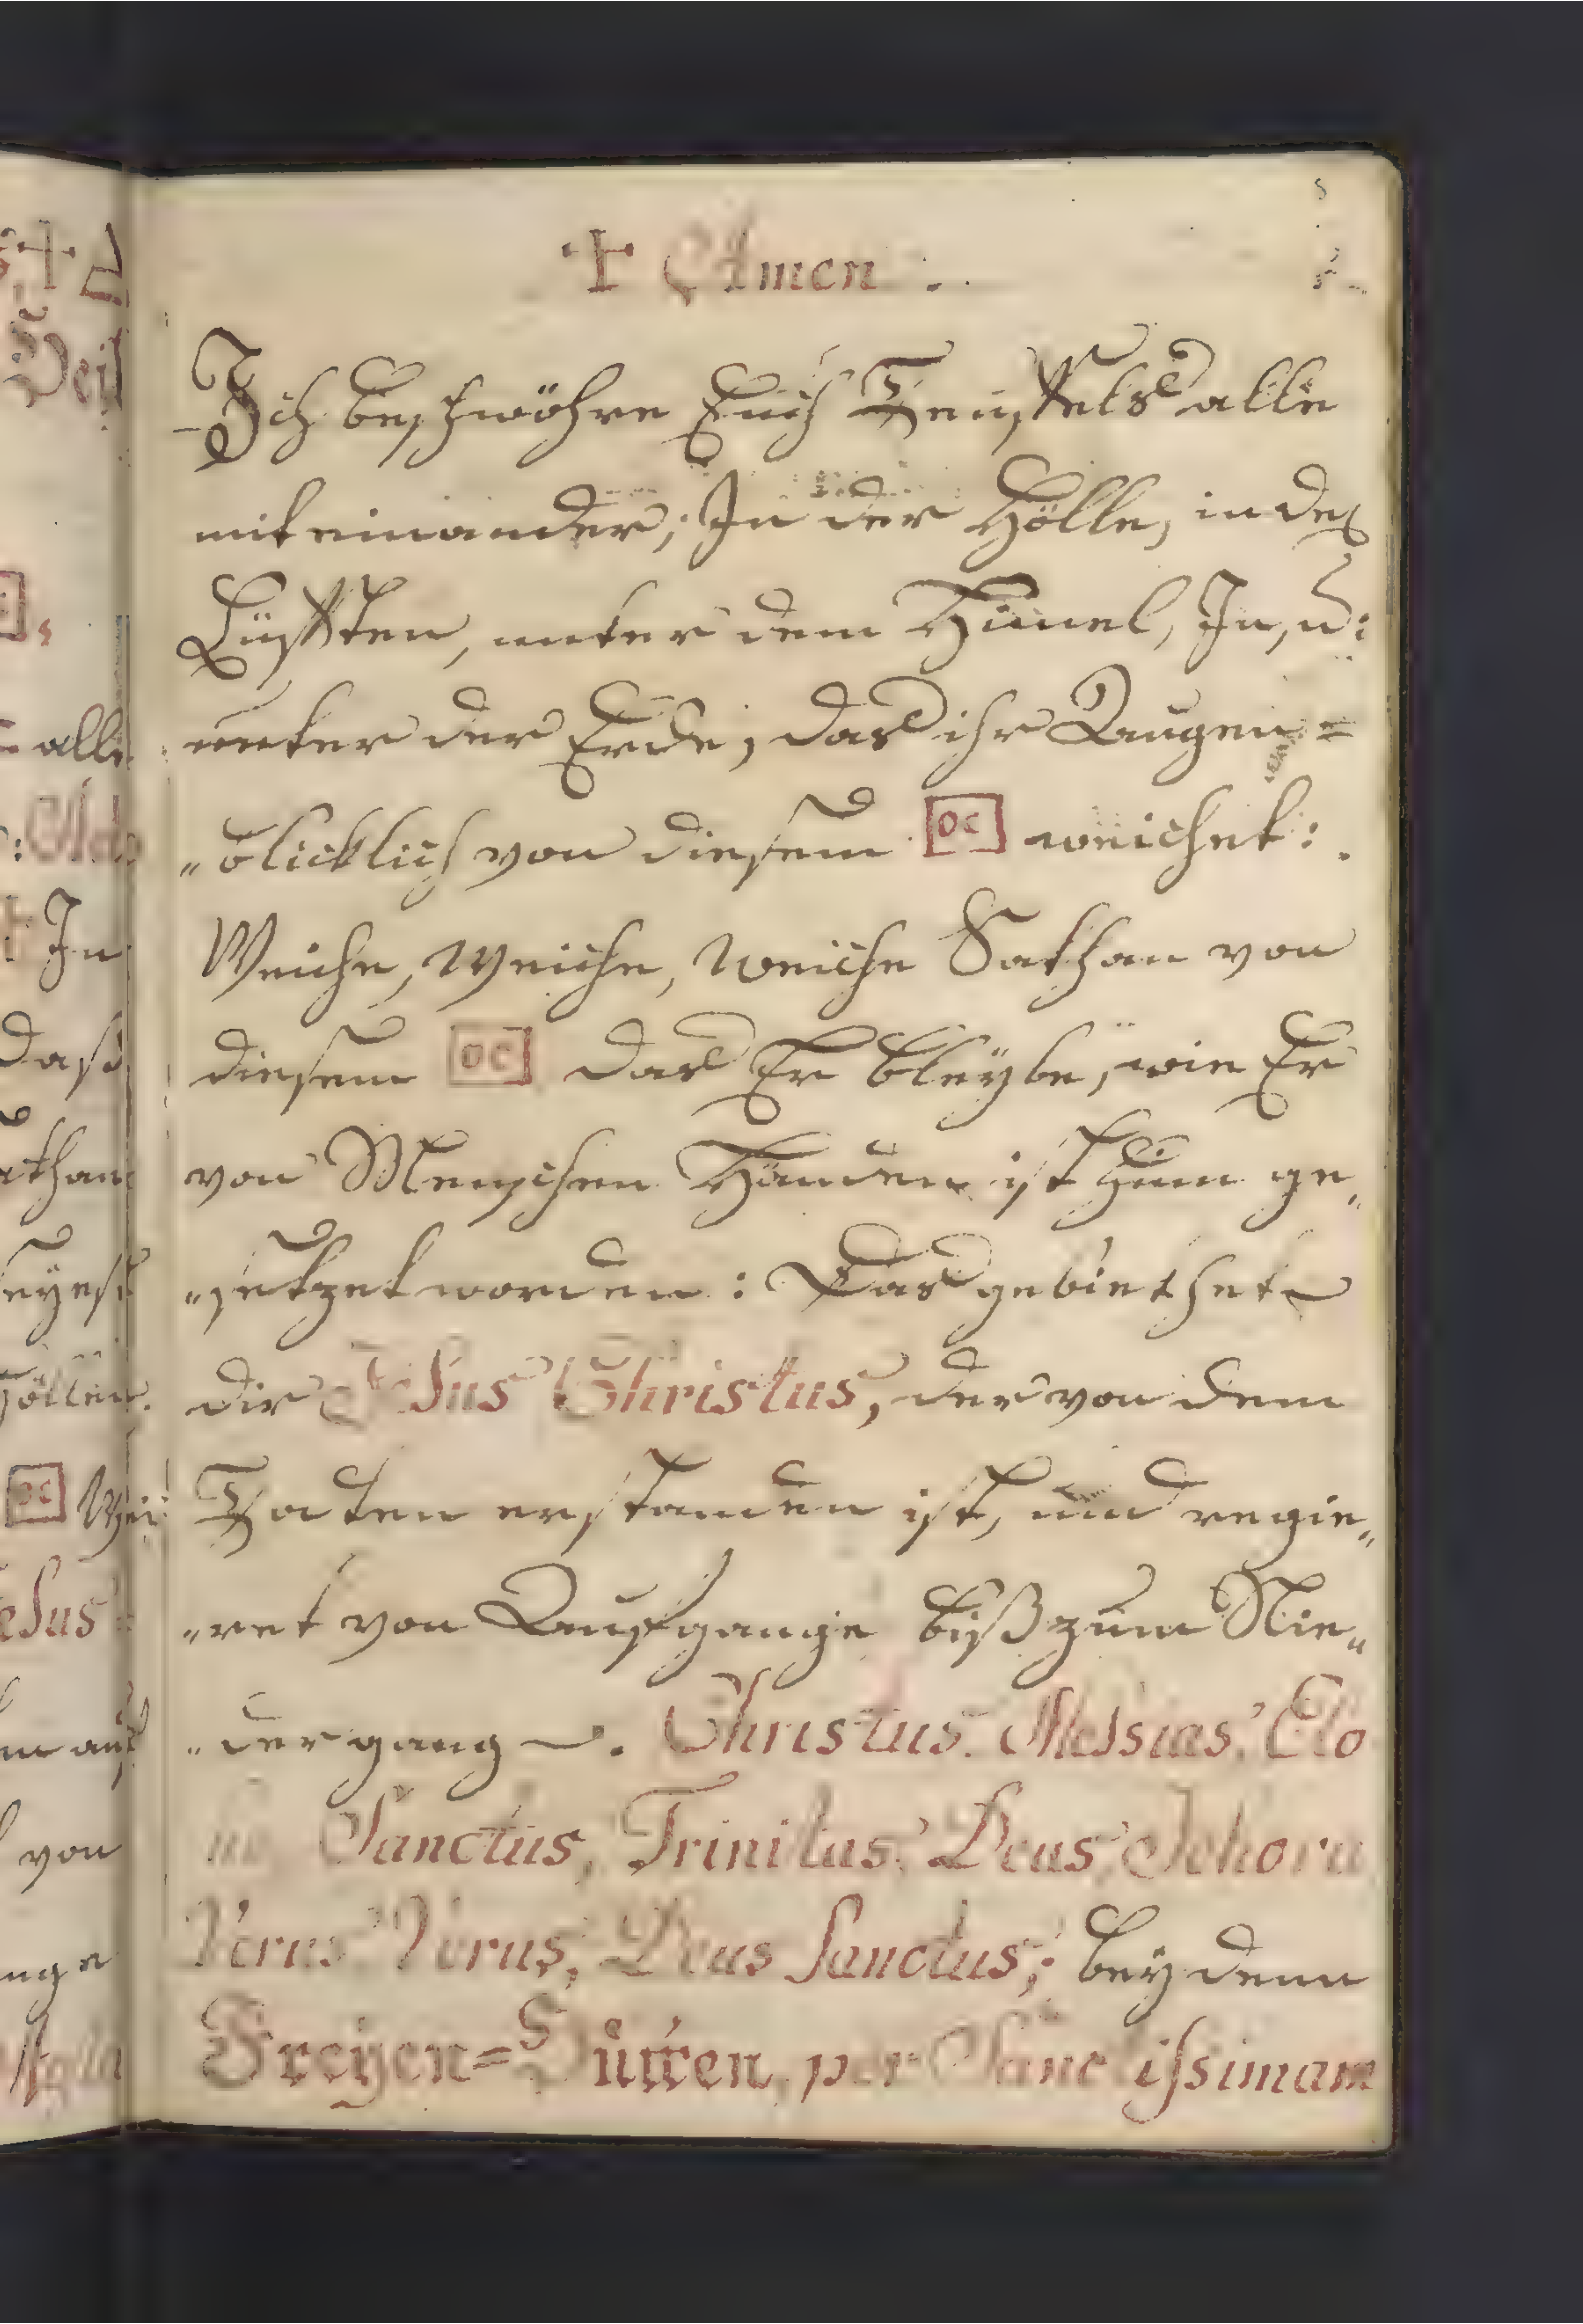 ✝ Amen .
Ich beschwöhre Euch Teuffels alle
mit einander; In der Hölle, in den
Lüfften, unter dem Himel, In, u:
unter der Erde, das ihr Augen=
„blicklich von diesem [OC] weichet:
Weiche, Weiche, weiche Sathan von
diesem [OC] das Er bleybe, wie Er
von Menschen Händen ist ge„
„setzet worden: Das gebiethet
dir Jesus Christus, der von dem
Todten erstanden ist, und regie„
„ret von Auffgange biß zum Nie„
„dergang. Christus. Messias, Elo
Sanctus, Trinitas, Deus, Jehova
Verus Deus Sanctus; bey denn
Freyen= per Sanctissimam
alle
In
daß
von